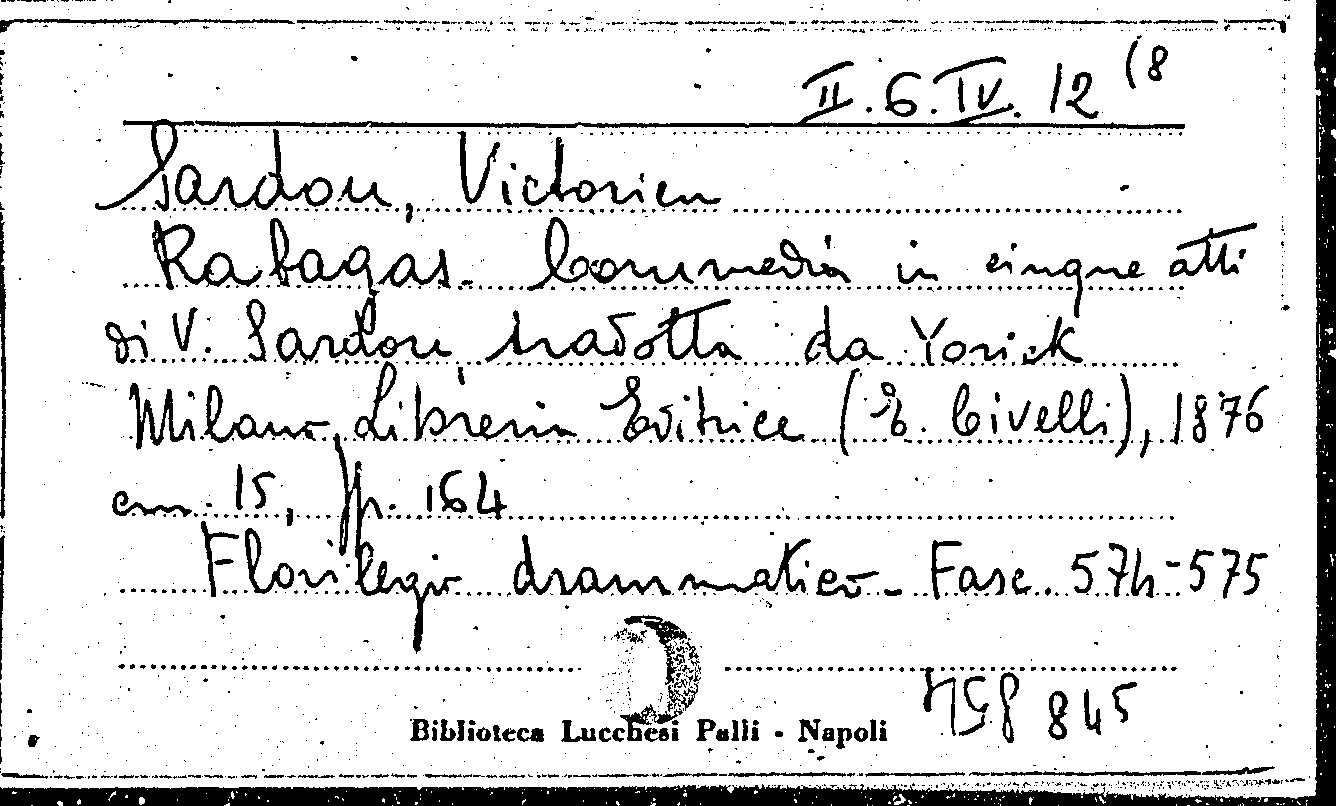 II.6.IV.12 (8
Sardou, Victorien
Rabagas. Commedia in cinque atti
di V. Sardou tradotta da Yorick
Milano, Libreria Editrice (E. Civelli), 1876
cm. 15, pp. 164
Florilegio drammatico - Fasc. 574-575
845
Biblioteca Lucchesi Palli - Napoli